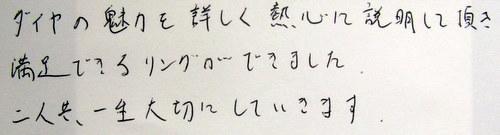 ダイヤの魅力を詳しく熱心に説明して頂き
満足できるリングができました.
二人共、一生大切にしていきます.